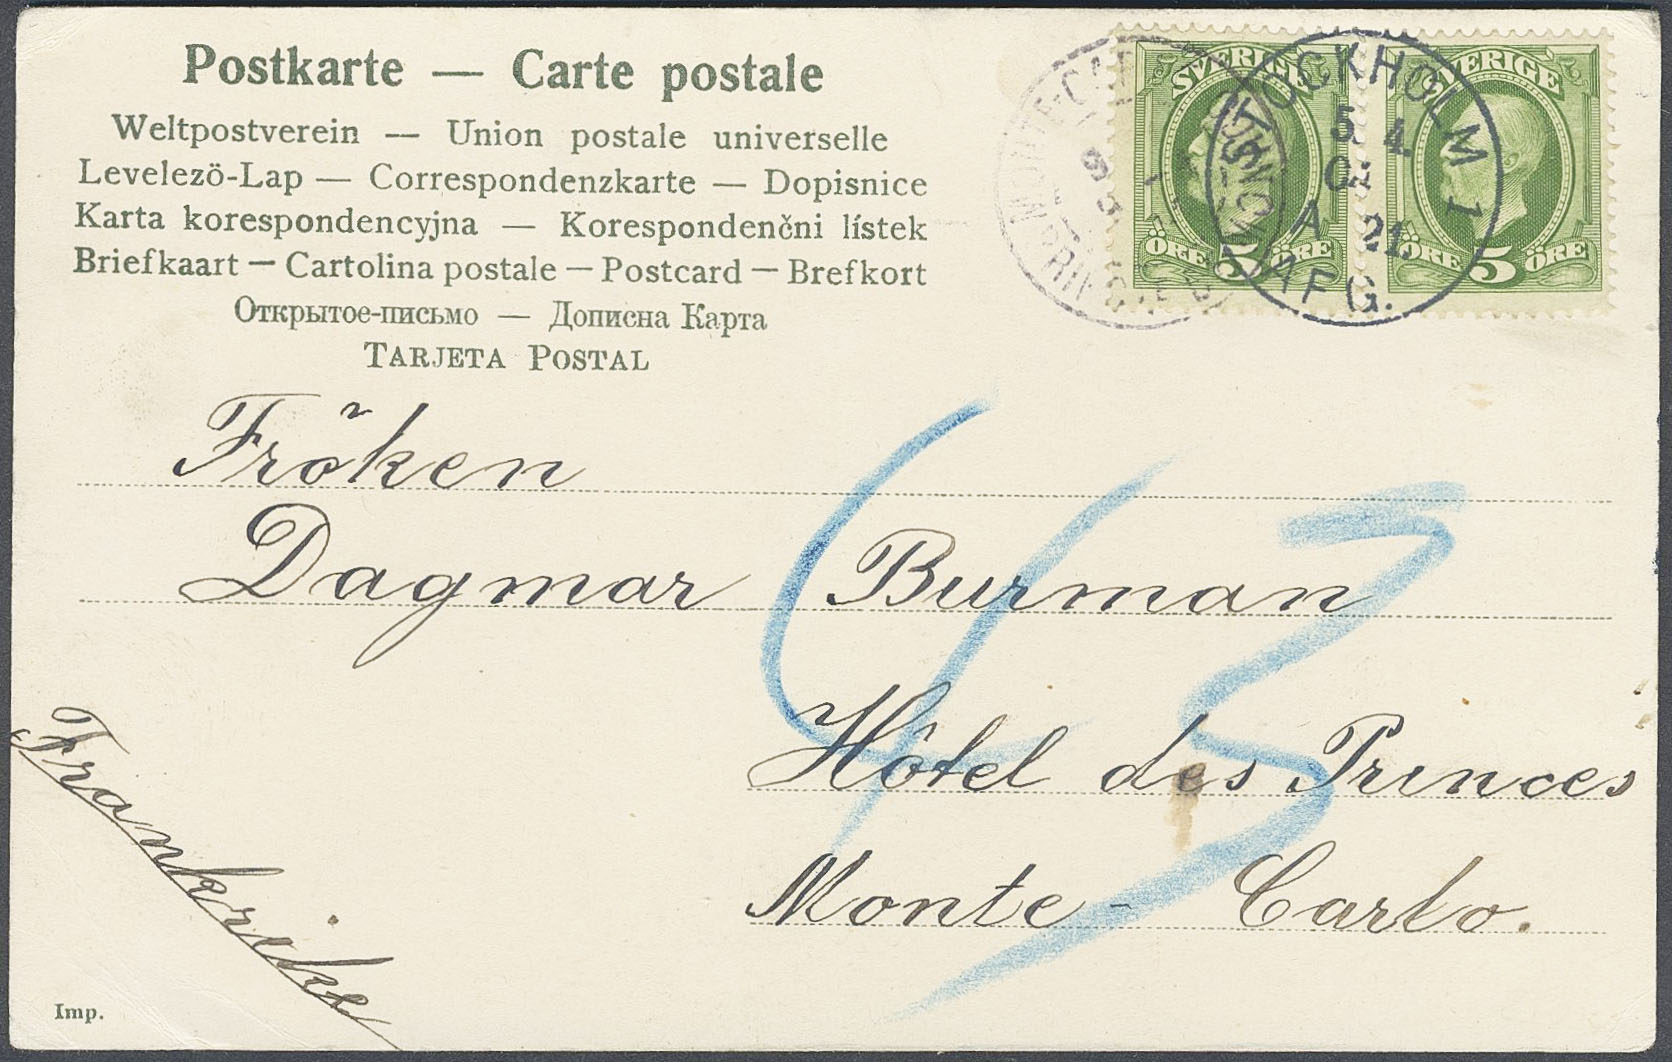 Postkarte — Carte postale
Weltpostverein — Union postale universelle
Levelezö-Lap — Correspondenzkarte — Dopisnice
Karta korespondencyjna — Korespondenčni lístek
Briefkaart — Cartolina postale — Postcard — Brefkort
Открытое-письмо — Дописна Карта
TARJETA POSTAL
SVERIGE
5 ÖRE
SVERIGE
ÖRE 5 ÖRE
STOCKHOLM 1
5. 4.
04
A 21.
AFG.
Fröken
Dagmar Burman
Hôtel des Princes
Monte-Carlo.
Frankrike
43
Imp.